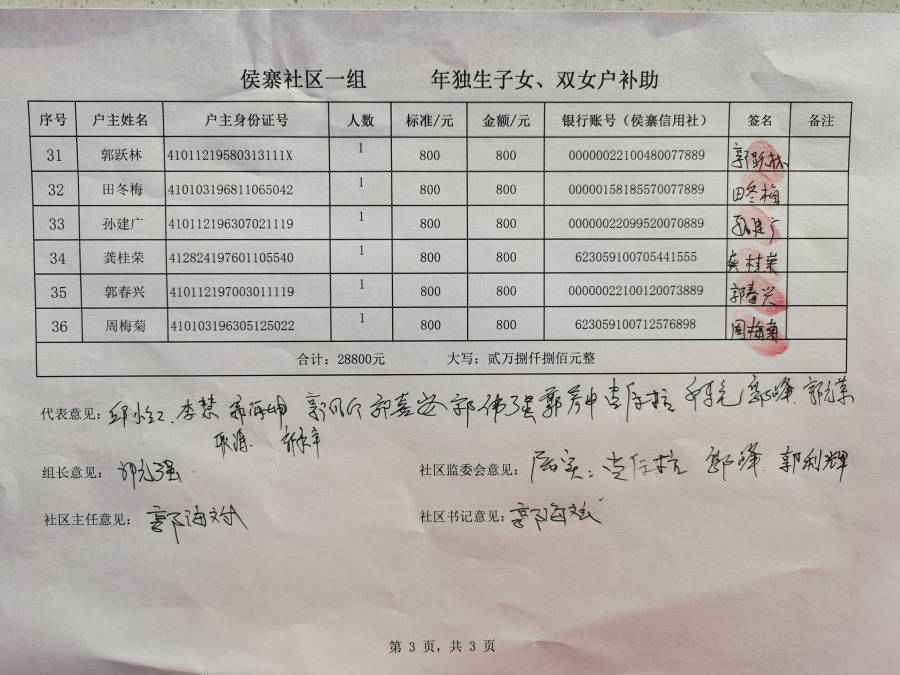 侯寨社区一组 年独生子女、双女户补助
序号 户主姓名 户主身份证号 人数 标准/元 金额/元 银行账号（侯寨信用社） 签名 备注
31 郭跃林 41011219580313111X 1 800 800 00000022100480077889 郭跃林
32 田冬梅 410103196811065042 1 800 800 00000158185570077889 田冬梅
33 孙建广 410112196307021119 1 800 800 00000022099520070889 孙建广
34 龚桂荣 412824197601105540 1 800 800 623059100705441555 龚桂荣
35 郭春兴 410112197003011119 1 800 800 00000022100120073889 郭春兴
36 周梅菊 410103196305125022 1 800 800 623059100712576898 周梅菊
合计：28800元 大写：贰万捌仟捌佰元整
代表意见： 李慧 郭嘉 郭伟强 郭彦申
组长意见：
社区监委会意见：属实： 郭利辉
社区主任意见：郭海斌
社区书记意见：郭海斌
第 3 页，共 3 页